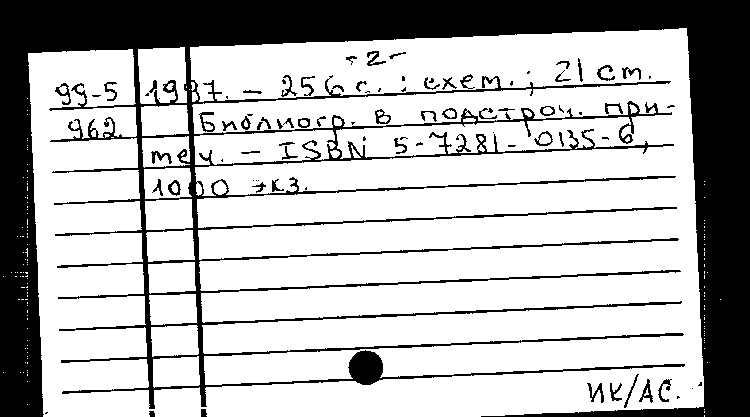 -2-
99-5 1997. - 256 с. : схем. ; 21 cm.
962. Библиогр. в подстроч. при-
меч. - ISBN 5-7281-0135-6,
1000 экз.
ИК/АС.